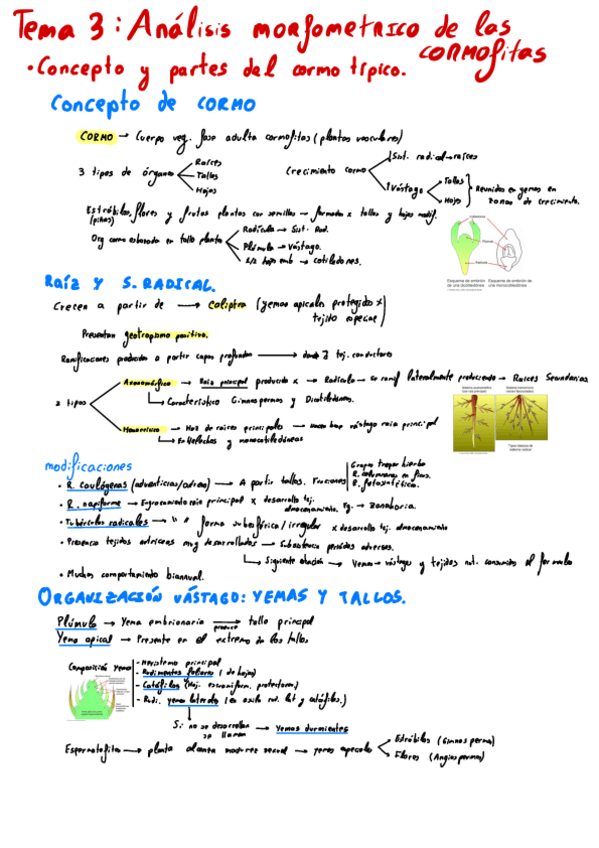 Tema 3: Análisis morfometrico de las cormofitas
• Concepto y partes del cormo típico.
Concepto de CORMO
CORMO → Cuerpo veg. fase adulta cormofitas (plantas vasculares)
3 tipos de órganos
Raíces
Tallos
Hojas
Crecimiento cormo
Sist. radical → raíces
Vástago
Tallos
Hojas
Reunidos en yemas en zonas de crecimiento.
Estróbilos, flores y frutos plantas con semillas → formados x tallos y hojas modif.
(piñas)
Org como esbozado en
Radícula → Sist. Rad.
Plúmula → Vástago.
1/2 hojas emb → cotiledones.
Esquema de embrión de una dicotiledónea
Esquema de embrión de una monocotiledónea
RAÍZ Y S. RADICAL.
Crecen a partir de → Caliptra (yemas apicales protegidas x tejido especial)
Presentan geotropismo positivo.
Ramificaciones producidas a partir capas profundas → tej. conductores
2 tipos
Axonomórfico → Raíz principal producida x → Radícula → se ramif lateralmente produciendo → Raíces Secundarias
Característico Gimnospermas y Dicotiledóneas.
Homorrizo → Haz de raíces principales → vástago raíz principal
En helechos y monocotiledóneas
modificaciones
• R. caulógenas (adventicias/aéreas) → A partir tallos. Funciones
Grapas trepar hiedra
R. columnares en ficus.
R. fotosintética.
• R. napiforme → Engrosamiento raíz principal x desarrollo tej. almacenamiento. Eg. → Zanahoria.
• Tubérculos radicales → " " forma subesférica / irregular x desarrollo tej. almacenamiento
• Presencia tejidos nutricios muy desarrollados → Subsistencia periodos adversos.
Siguiente estación → Yemas → vástagos y tejidos nut. consumidos al
• Muchas comportamiento bianual.
ORGANIZACIÓN VÁSTAGO: YEMAS Y TALLOS.
Plúmula → Yema embrionaria → produce tallo principal
Yema apical → Presente en el extremo de los tallos
Composición yema
- Meristemo principal
- Rudimentos foliares (de hojas)
- Catáfilos (Hoj. escuamiform. protectoras)
- Rudi. yema laterales (en axila rud. fol y catáfilos.)
Si no se desarrollan se llaman → Yemas durmientes
Espermatofitas → planta alcanza madurez sexual → yemas apicales
Estróbilos (Gimnosperma)
Flores (Angiosperma)